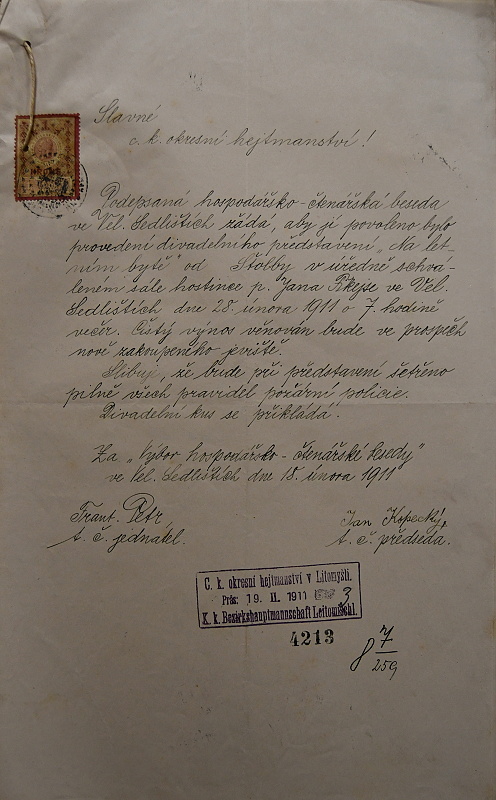 Slavné
c. k. okresní hejtmanství!
Podepsaná hospodářsko-čtenářská beseda
ve Vel. Sedlištích žádá, aby jí povoleno bylo
provedení divadelního představení „Na let-
ním bytě" od Štolby v úředně schvá-
leném sále hostince p. Jana ve Vel.
Sedlištích dne 28. února 1911 o 7. hodině
večer. Čistý výnos věnován bude ve prospěch
nově zakoupeného jeviště.
Slibuje, že bude při představení šetřeno
pilně všech pravidel požární policie.
Divadelní kus se přikládá.
Za „Výbor hospodářsko-čtenářské besedy"
ve Vel. Sedlištích dne 18. února 1911
Frant. Petr, Jan Kopecký,
t. č. jednatel. t. č. předseda.
C. k. okresní hejtmanství v Litomyšli.
Präs: 19. II. 1911 3
K. k. Bezirkshauptmannschaft Leitomischl.
4213
8 7/259